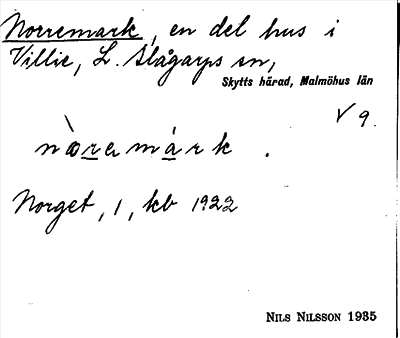 Norremark, en del hus i
Villie, L. Slågarps sn,
Skytts härad, Malmöhus län
V 9.
nòremárk.
Norget, 1, kb 1922
NILS NILSSON 1935